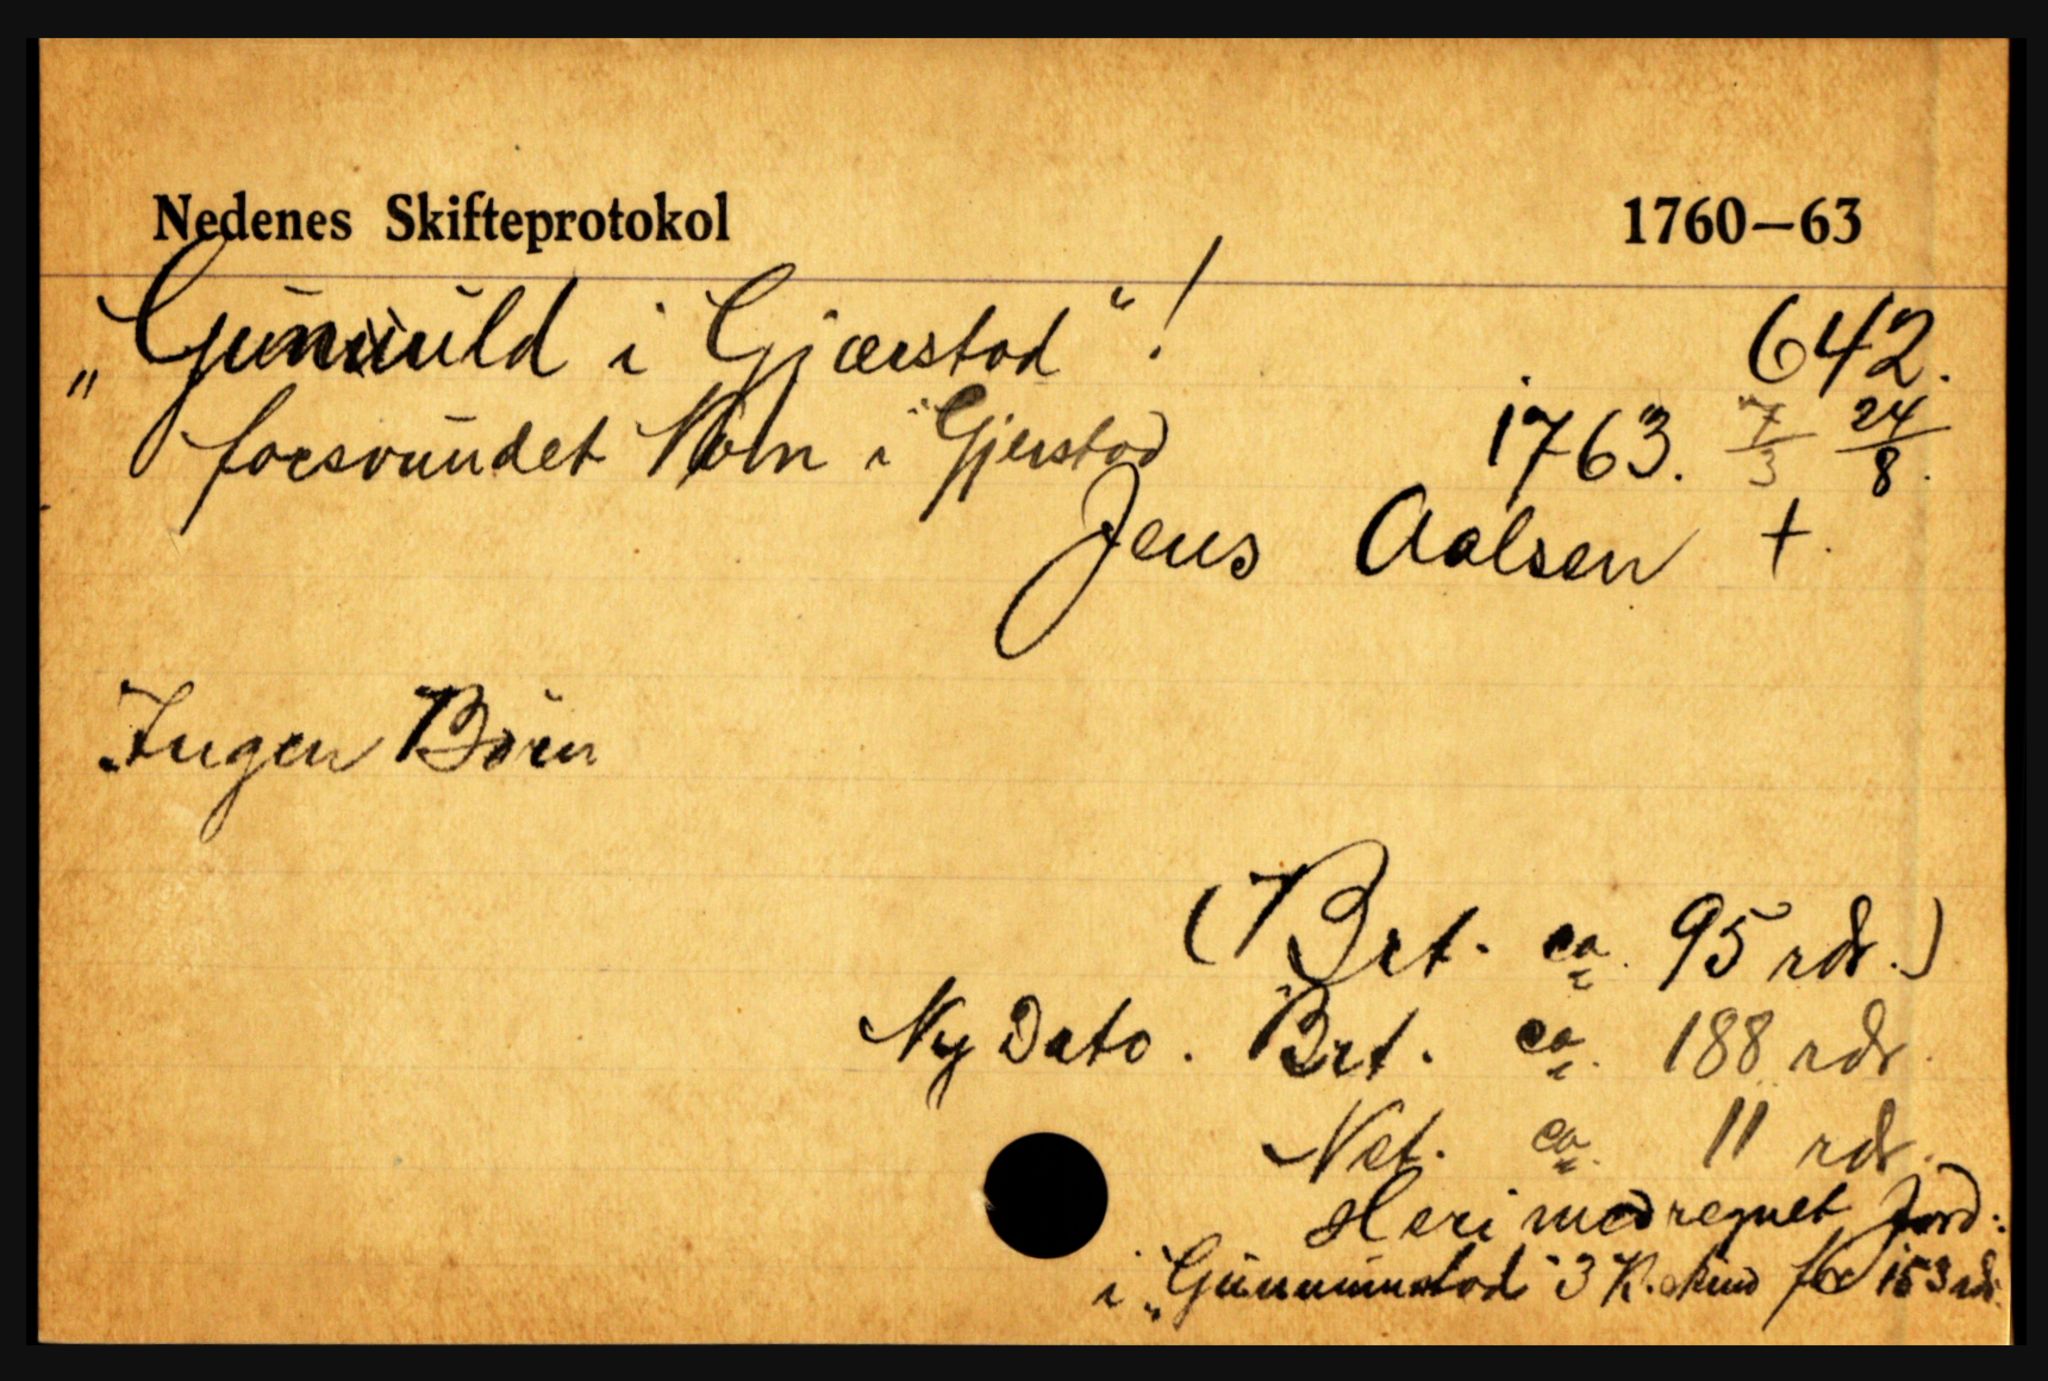 Nedenes Skifteprotokol 1760–63
„Gunnuld i Gjærstad“! 642.
forsvundet Navn i Gjerstad 1763. 7/3 24/8.
Jens Aalsen †.
Ingen Børn
(Brt. ca. 95 rdr.)
Ny Dato. Brt. ca. 188 rdr.
Net. ca. 11 rdr.
Heri medregnet Jord:
i „Gunnumstad“ 3 K.skind for 153 rdr.